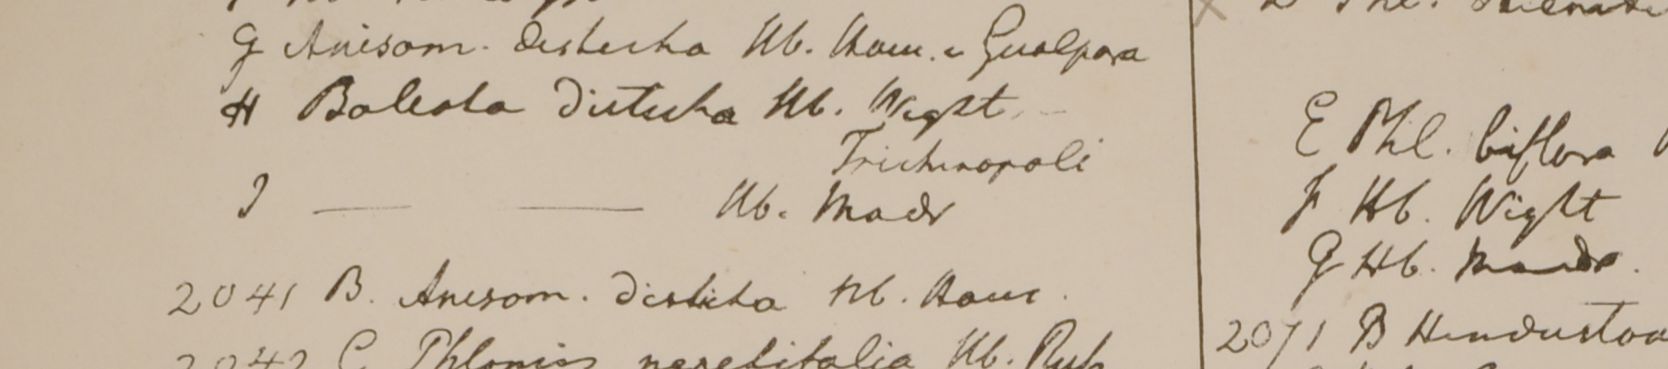 G Anisom. disticha Hb. Ham. e Gualpara
H Baleota disticha Hb. Wight
Trichinopoli
I — — Hb. Madr
2041 B. Anisom. disticha Hb. Ham.
2042 C Phlomis nepetifolia Hb. Rusp
E Phl. biflora
F Hb. Wight
G Hb. Madr.
2071 B Hindustan